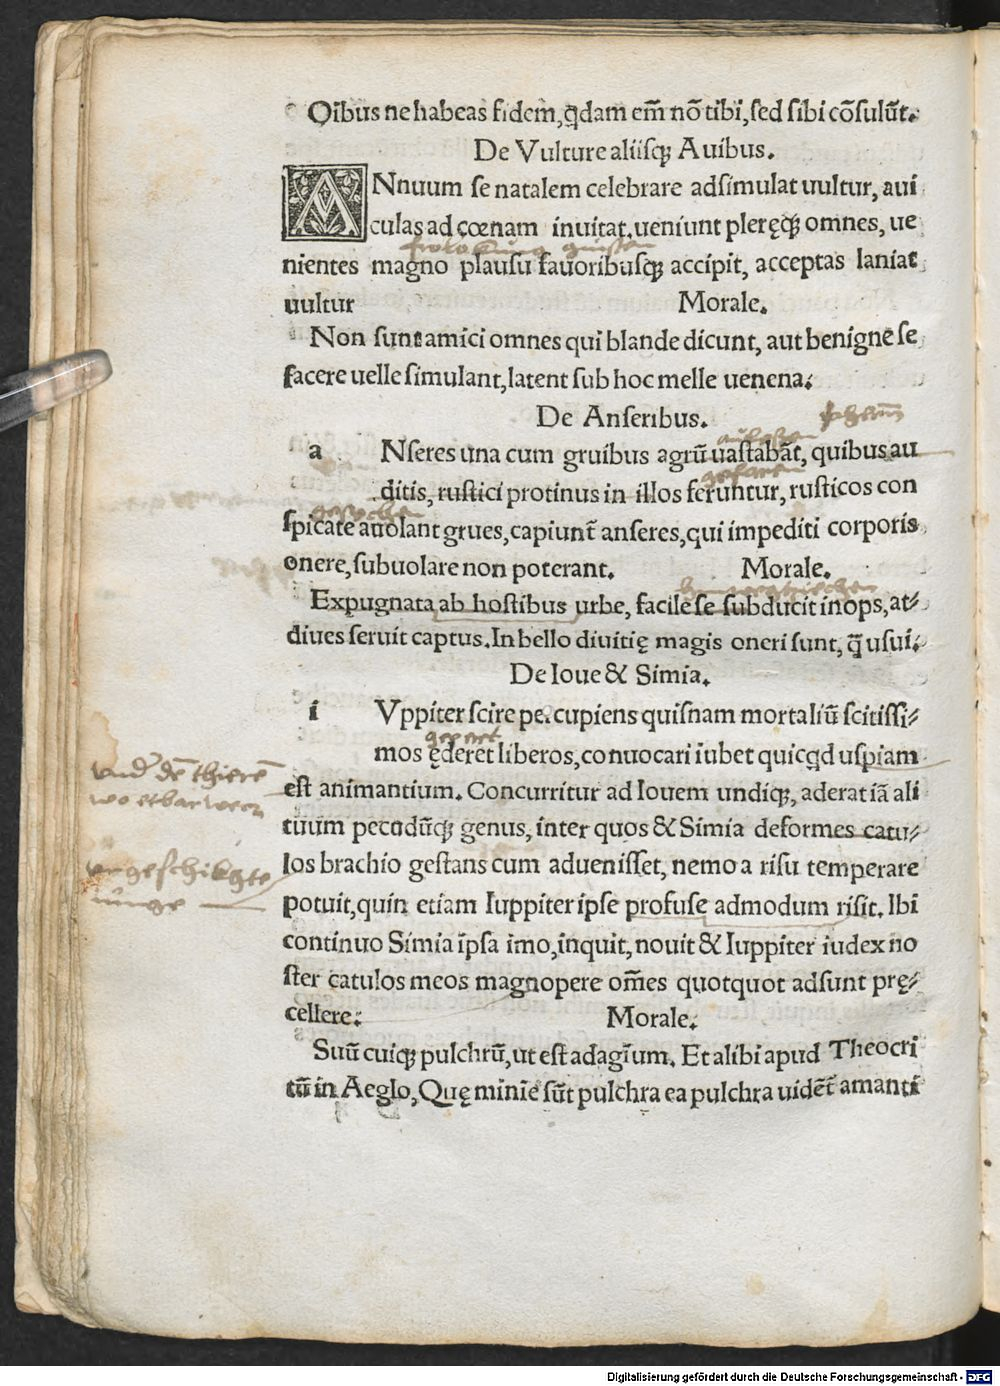 Oibus ne habeas fidem, qdam em̃ nõ tibi, sed sibi cõsulũt.
De Vulture aliisqꝫ Auibus.
ANnuum se natalem celebrare adsimulat uultur, aui
culas ad cœnam inuitat. ueniunt pleręqꝫ omnes, ue
nientes magno plausu fauoribusqꝫ accipit, acceptas laniat
uultur Morale.
Non sunt amici omnes qui blande dicunt, aut benigne se
facere uelle simulant, latent sub hoc melle uenena.
De Anseribus.
a NSeres una cum gruibus agrũ uastabãt, quibus au
ditis, rustici protinus in illos feruntur, rusticos con
spicate auolant grues, capiunt̃ anseres, qui impediti corporis
onere, subuolare non poterant. Morale.
Expugnata ab hostibus urbe, facile se subducit inops, at-
diues seruit captus. In bello diuitię magis oneri sunt, q̃ usui.
De Ioue & Simia.
i Vppiter scire pe. cupiens quisnam mortaliũ scitissi-
mos ęderet liberos, conuocari iubet quicqd uspiam
vnd̕ dẽ thierẽ
est animantium. Concurritur ad Iouem undiqꝫ, aderat iã ali
tuum pecudũqꝫ genus, inter quos & Simia deformes catu-
los brachio gestans cum aduenisset, nemo a risu temperare
vngeschikgte
iunge
potuit, quin etiam Iuppiter ipse profuse admodum risit. Ibi
continuo Simia ipsa imo, inquit, nouit & Iuppiter iudex no
ster catulos meos magnopere om̃es quotquot adsunt prę-
cellere. Morale.
Suũ cuiqꝫ pulchrũ, ut est adagium. Et alibi apud Theocri
tũ in Aeglo, Quę minĩe sũt pulchra ea pulchra uidẽt amanti
Digitalisierung gefördert durch die Deutsche Forschungsgemeinschaft - DFG